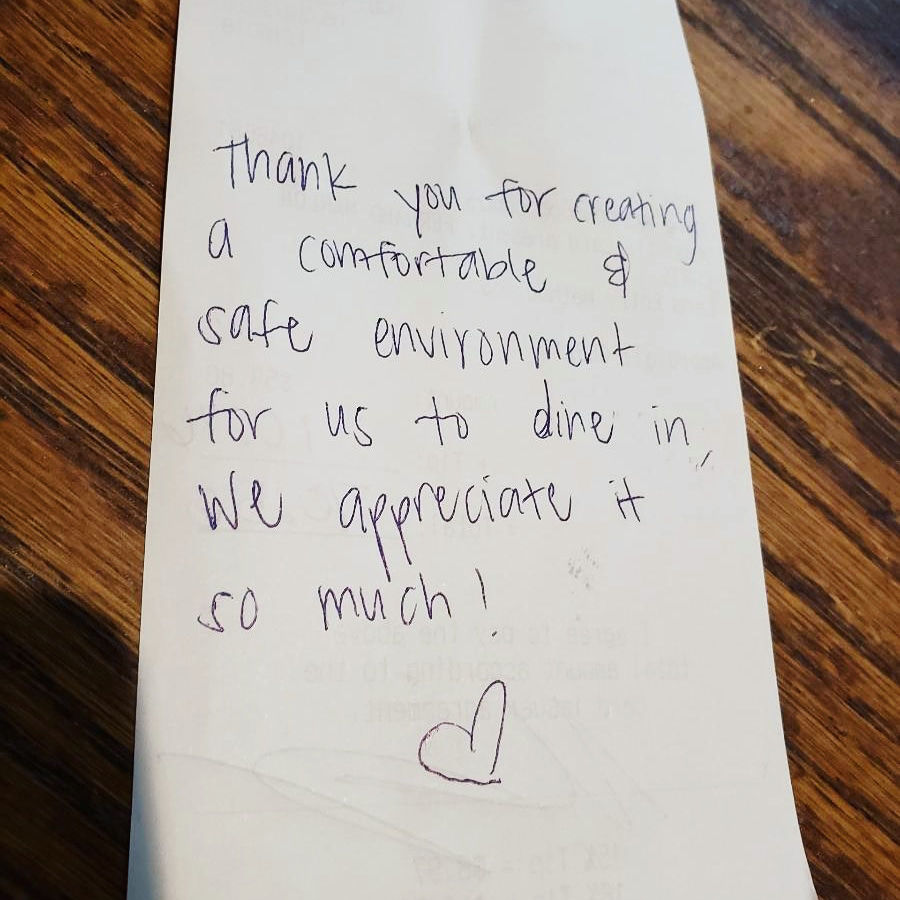 Thank you for creating
a comfortable &
safe environment
for us to dine in,
We appreciate it
so much!
I agree to pay the above
total amount according to the
card issuer agreement.